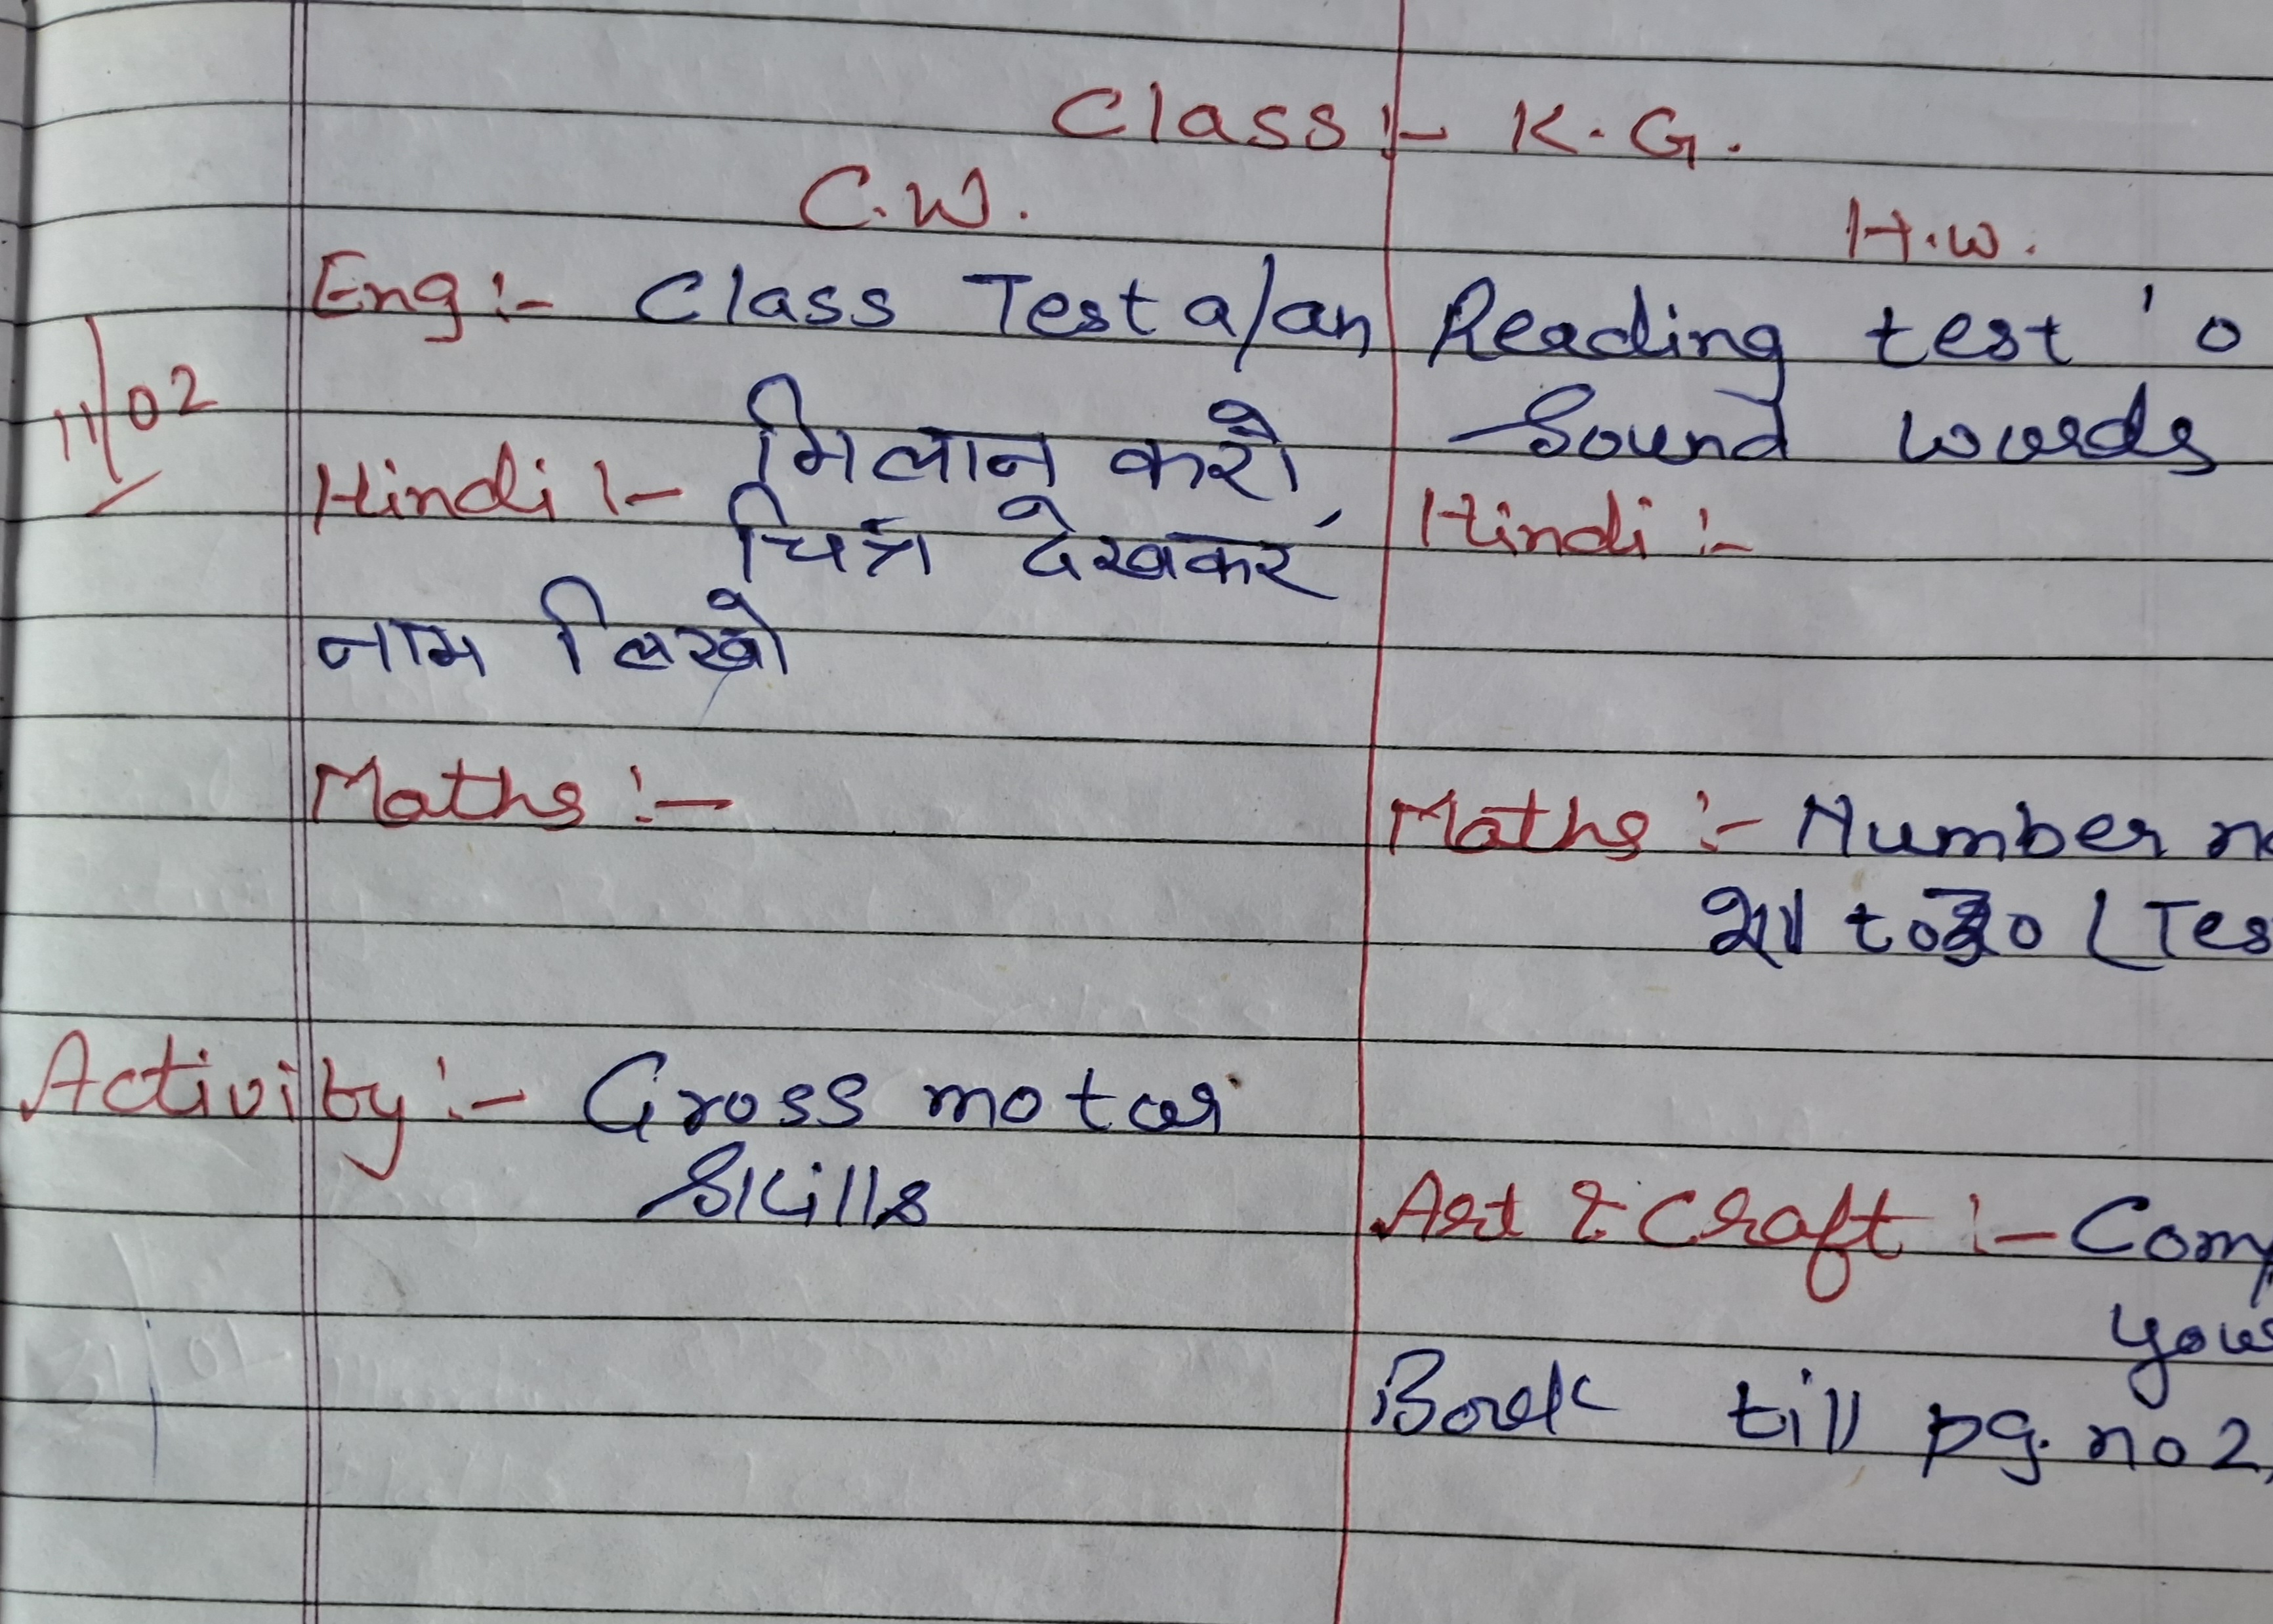 Class :- K.G.
C.W.
H.W.
Eng :- Class Test a/an
Reading test 'o
Sound words
11/02
Hindi :- मिलान करो,
चित्र देखकर
नाम लिखो
Hindi :-
Maths :-
Maths :- Number
to 30 (Tes
Activity :- Gross motor
Skills
Art & Craft :- Com
your
Book till pg. no 2